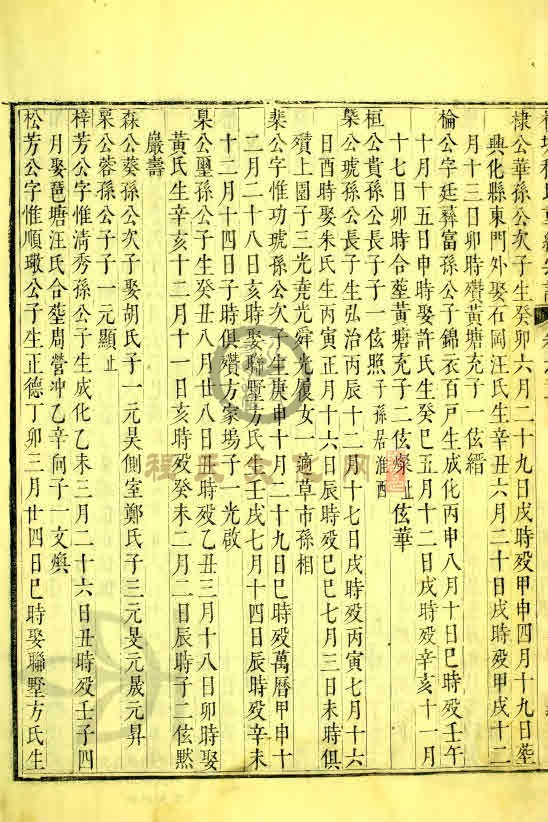 棣公華孫公次子生癸卯六月二十九日戌時殁甲申四月十九日塟
興化縣東門外娶石岡汪氏生辛六月二十日戌時殁甲戌十二
月十三日卯時殯黄塘充子一伭縉
棆公字廷彛富孫公子錦衣百戸生成化丙申八月十日巳時殁壬午
十月十五日申時娶許氏生癸巳五月十二日戌時殁辛亥十一月
十七日卯時合塟黄塘充子二伭燦止伭華
桓公貴孫公長子子一伭照子孫居淮西
槩公琥孫公長子生弘治丙辰十二月十七日戌時殁丙寅七月十六
日酉時娶朱氏生丙寅正月十六日辰時殁巳巳七月三日未時俱
殯上園子三光堯光舜光履女一適草市孫相
棐公字惟功琥孫公次子生庚申十月二十九日巳時殁萬曆甲申十
二月二十八日亥時娶聯墅方氏生壬戌七月十四日辰時殁辛未
十二月十四日子時俱殯方家塢子一光啟
杲公璽孫公子生癸丑八月廿八日丑時殁乙丑三月十八日卯時娶
黄氏生辛亥十二月十一日亥時殁癸未二月二日辰時子二伭黙
巖壽
森公葵孫公次子娶胡氏子一元昊側室鄭氏子三元旻元晟元昇
栗公蓉孫公子子一元顯止
梓芳公字惟清秀孫公子生成化乙未三月二十六日丑時殁壬子四
月娶琶塘汪氏合塟周營冲乙辛向子一文燠
松芳公字惟順璥公子生正德丁卯三月廿四日巳時娶聯墅方氏生